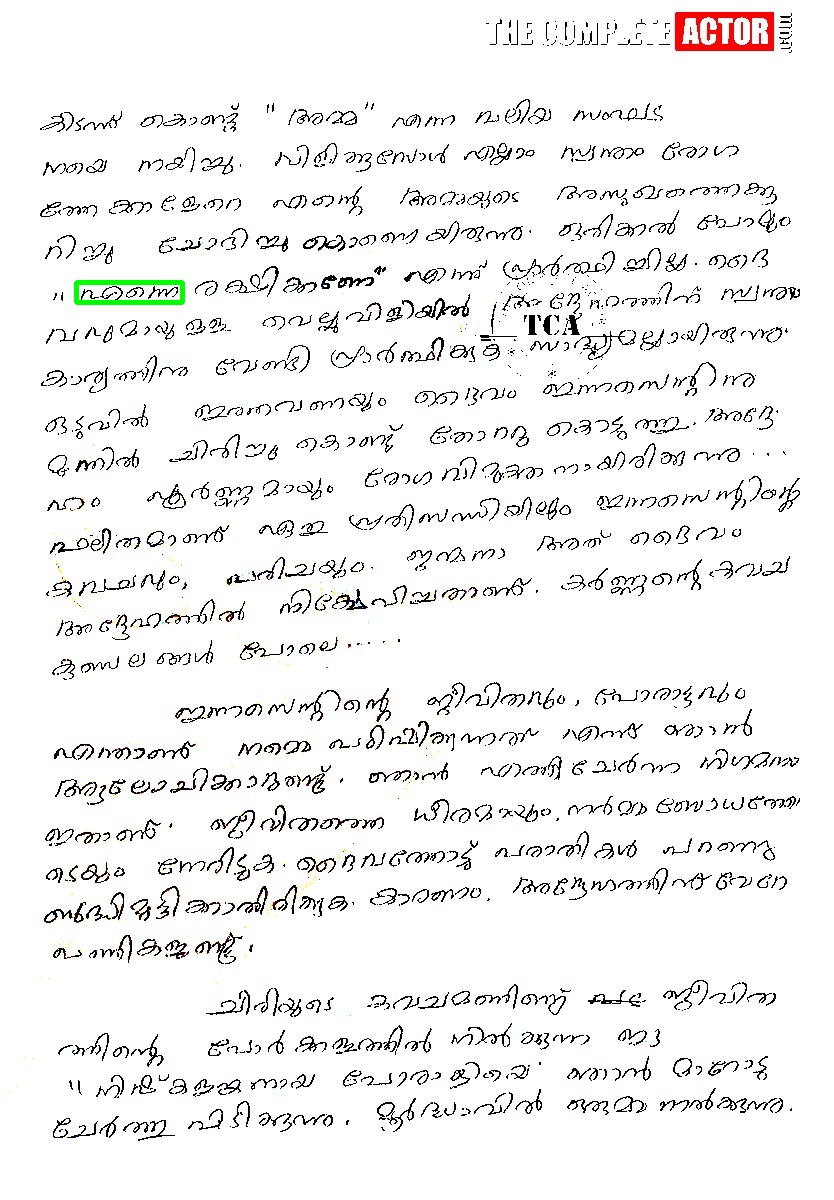 THE COMPLETE ACTOR
കിടന്ന് കൊണ്ട് "അമ്മ" എന്ന വലിയ സംഘട
നയെ നയിച്ചു. വിളിക്കുമ്പോൾ എല്ലാം സ്വന്തം രോഗ
ത്തേക്കാളേറെ എന്റെ അമ്മയുടെ അസുഖത്തെക്കു
റിച്ചു ചോദിച്ചു കൊണ്ടേയിരുന്നു. ഒരിക്കൽ പോലും
"എന്നെ രക്ഷിക്കണേ" എന്ന് പ്രാർത്ഥിച്ചില്ല. ദൈ
വവുമായുള്ള വെല്ലുവിളിയിൽ അദ്ദേഹത്തിന് സ്വന്തം
TCA
കാര്യത്തിനു വേണ്ടി പ്രാർത്ഥിക്കുക സാദ്ധ്യമല്ലായിരുന്നു.
ഒടുവിൽ ഇത്തവണയും ദൈവം ഇന്നസെന്റിനു
മുന്നിൽ ചിരിച്ചു കൊണ്ട് തോറ്റു കൊടുത്തു. അദ്ദേ
ഹം പൂർണ്ണമായും രോഗവിമുക്തനായിരിക്കുന്നു...
ഫലിതമാണ് ഏത് പ്രതിസന്ധിയിലും ഇന്നസെന്റിന്റെ
കവചവും, പരിചയും. ജന്മനാ അത് ദൈവം
അദ്ദേഹത്തിൽ നിക്ഷേപിച്ചതാണ്. കർണ്ണന്റെ കവച
കുണ്ഡലങ്ങൾ പോലെ.....
ഇന്നസെന്റിന്റെ ജീവിതവും, പോരാട്ടവും
എന്താണ് നമ്മെ പഠിപ്പിക്കുന്നത് എന്ന് ഞാൻ
ആലോചിക്കാറുണ്ട്. ഞാൻ എത്തിച്ചേർന്ന നിഗമനം
ഇതാണ്. ജീവിതത്തെ ധീരമായും, നർമ്മബോധത്തോ
ടെയും നേരിടുക. ദൈവത്തോട് പരാതികൾ പറഞ്ഞു
ബുദ്ധിമുട്ടിക്കാതിരിക്കുക. കാരണം, അദ്ദേഹത്തിന് വേറേ
പണികളുണ്ട്.
ചിരിയുടെ കവചമണിഞ്ഞ് ജീവിത
ത്തിന്റെ പോർക്കളത്തിൽ നിൽക്കുന്ന ഈ
"നിഷ്കളങ്കനായ പോരാളിയെ" ഞാൻ മാറോടു
ചേർത്തു പിടിക്കുന്നു. മൂർദ്ധാവിൽ ഉമ്മ നൽകുന്നു.